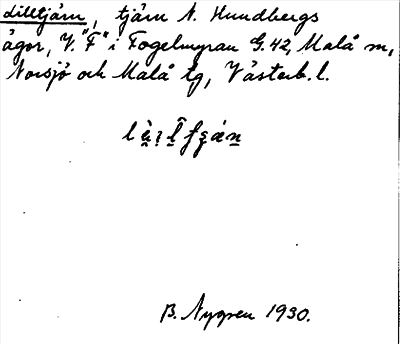 Lilltjärn, tjärn N. Hundbergs
ägor, V. "F" i Fogelmyran G.42, Malå sn,
Norsjö och Malå tg, Västerb. l.
B. Nygren 1930.